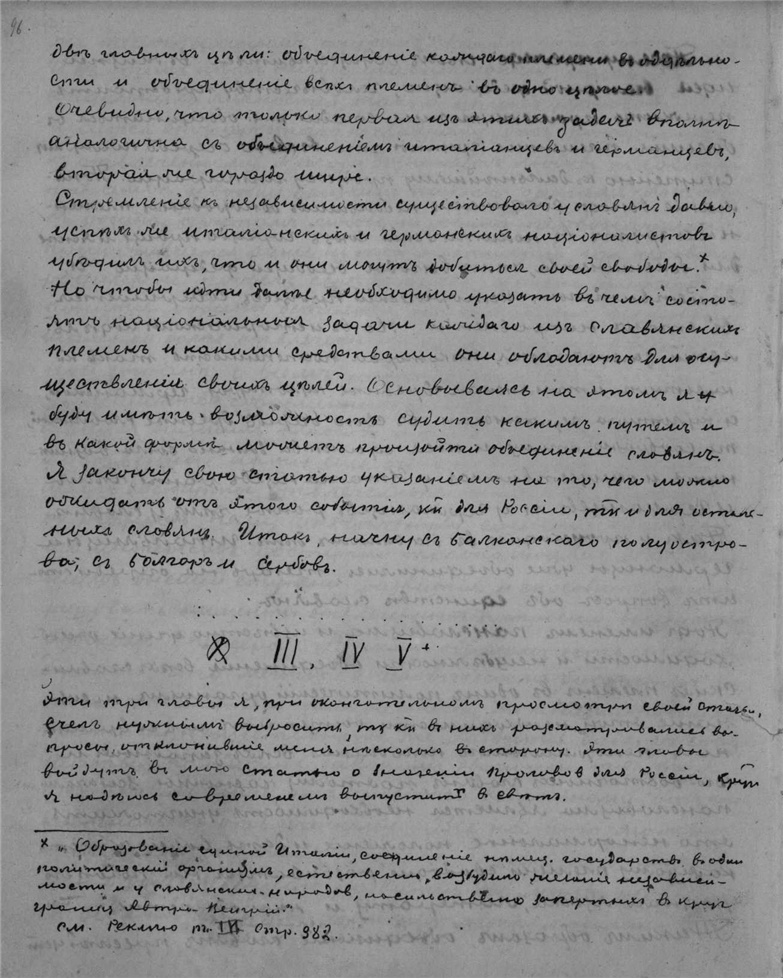 96.
двѣ главныхъ цѣли: объединеніе каждаго племени въ отдѣльно-
сти и объединеніе всѣхъ племенъ въ одно цѣлое.
Очевидно, что только первая изъ этихъ задачъ вполнѣ
аналогична съ объединеніемъ итальянцевъ и германцевъ,
вторая же гораздо шире.
Стремленіе къ независимости существовало у славянъ давно,
успѣхъ же италіанскихъ и германскихъ націоналистовъ
убѣдилъ ихъ, что и они могутъ добиться своей свободы.×
Но чтобы идти далѣе необходимо указать въ чемъ состо-
ятъ національныя задачи каждаго изъ славянскихъ
племенъ и какими средствами они обладаютъ для осу-
ществленія своихъ цѣлей. Основываясь на этомъ я и
буду имѣть возможность судить какимъ путемъ и
въ какой формѣ можетъ произойти объединеніе славянъ.
Я закончу свою статью указаніемъ на то, чего можно
ожидать отъ этого событія, кк для Россіи, тк и для осталь-
ныхъ славянъ. Итакъ, начну съ Балканскаго полуостро-
ва, съ Болгаръ и Сербовъ.
III, IV V
Эти три главы я, при окончательномъ просмотрѣ своей статьи,
счелъ нужнымъ выбросить, тк кк въ нихъ разсматривались во-
просы, отклонившіе меня нѣсколько въ сторону. Эти главы
войдутъ въ мою статью о значеніи Проливовъ для Россіи,
я надѣюсь современемъ выпустить въ свѣтъ.
× „Образованіе единой Италіи, соединеніе нѣмец. государствъ въ одинъ
политическій организмъ, естественно, возбудило желаніе независи-
мости и у славянскихъ народовъ, насильственно запертыхъ въ
границ Австро-Венгріи."
См. Реклю т. IV стр. 982.